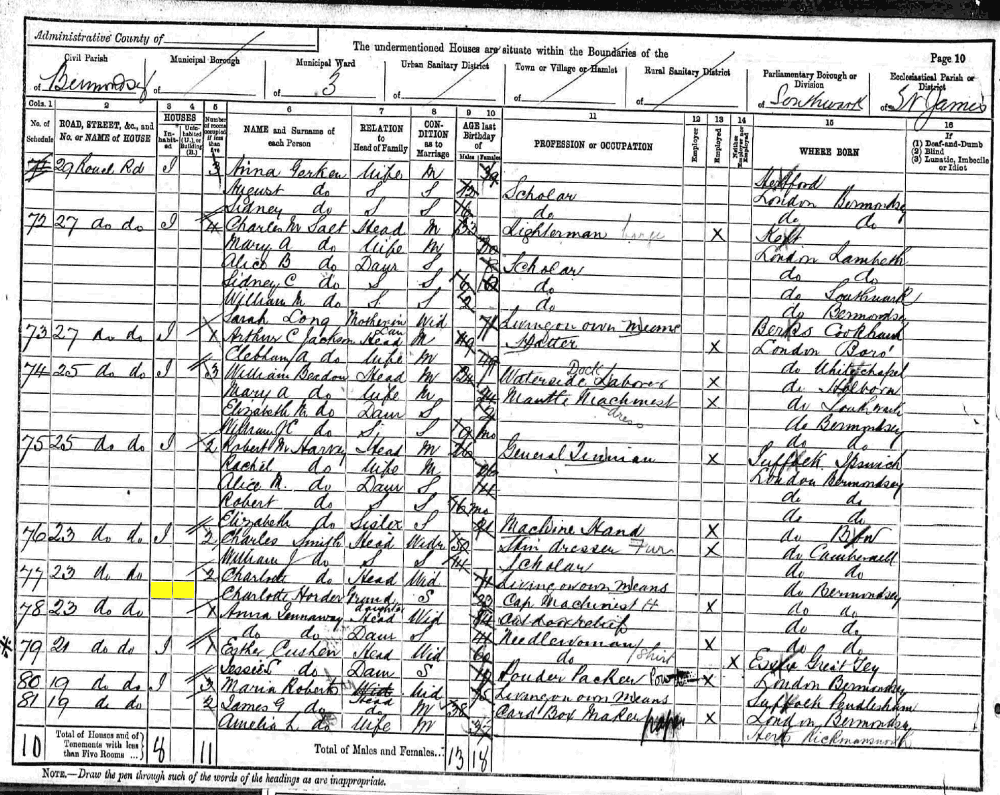 Administrative County of
The undermentioned Houses are situate within the Boundaries of the
Page 10
Civil Parish of Bermondsey
Municipal Borough of
Municipal Ward of 3
Urban Sanitary District of
Town or Village or Hamlet of
Rural Sanitary District of
Parliamentary Borough or Division of Southwark
Ecclesiastical Parish or District of St James
Cols. 1 2 3 4 5 6 7 8 9 10 11 12 13 14 15 16
No. of Schedule
ROAD, STREET, &c., and No. or NAME of HOUSE
HOUSES
In-habit-ed
Unin-habited (U.), or Building (B.)
Number of rooms occupied if less than five
NAME and Surname of each Person
RELATION to Head of Family
CON-DITION as to Marriage
AGE last Birthday of
Males Females
PROFESSION or OCCUPATION
Employer
Employed
Neither Employer nor Employed
WHERE BORN
If (1) Deaf-and-Dumb (2) Blind (3) Lunatic, Imbecile or Idiot
29 Rouel Rd 1 3 Anna Gerken Wife M 39
August do S S 12 Scholar London Bermondsey
Sidney do S S 6 do do do
72 27 do do 1 4 Charles M Salt Head M 33 Lighterman barge X Kent
Mary A do Wife M London Lambeth
Alice B do Daur S 8 Scholar do do
Sidney C do S S 6 do do Southwark
William M do S S 2 do do Bermondsey
Sarah Long Mother in Law Wid 71 Living on own Means Berks Cookham
73 27 do do 1 Arthur C Jackson Head M 49 Hatter X London Boro'
A do Wife M 49 do Whitechapel
74 25 do do 1 3 William Beadon Head M 24 Waterside Dock Laborer X do Holborn
Mary A do Wife M 24 Mantle Machinest dress X do Southwark
Elizabeth M do Daur S 2 do Bermondsey
William do S S 9 mo do do
75 25 do do 1 2 Robert M Harvey Head M 26 General X Suffolk Ipswich
Rachel do Wife M London Bermondsey
Alice M. do Daur S 4 do do
Robert do S S 6 mo do do
Elizabeth do Sister S Machine Hand X do
76 23 do do 1 2 Charles Smith Head Widr 50 Skin dresser Fur X do Camberwell
William J do S S 14 Scholar do do
77 23 do do 2 Charlotte do Head Wid 74 Living on own means do Bermondsey
Charlotte Horder Grand daughter S 22 Cap Machinest H X do do
78 23 do do Anna Head Wid 84 do do
do do Daur S Needlewoman X do do
79 21 do do 1 Esther Cushen Head Wid 60 do Shirt X Essex Great
Jessie S do Daur S Powder Packer X London Bermondsey
80 19 do do 1 3 Maria Roberts Head Wid Living on own Means Suffolk
81 19 do do 2 James G do do M 38 Card Box Maker paper X London Bermondsey
Amelia L do Wife M Herts Rickmansworth
10 Total of Houses and of Tenements with less than Five Rooms ... 8 11
Total of Males and Females... 13 18
NOTE.—Draw the pen through such of the words of the headings as are inappropriate.